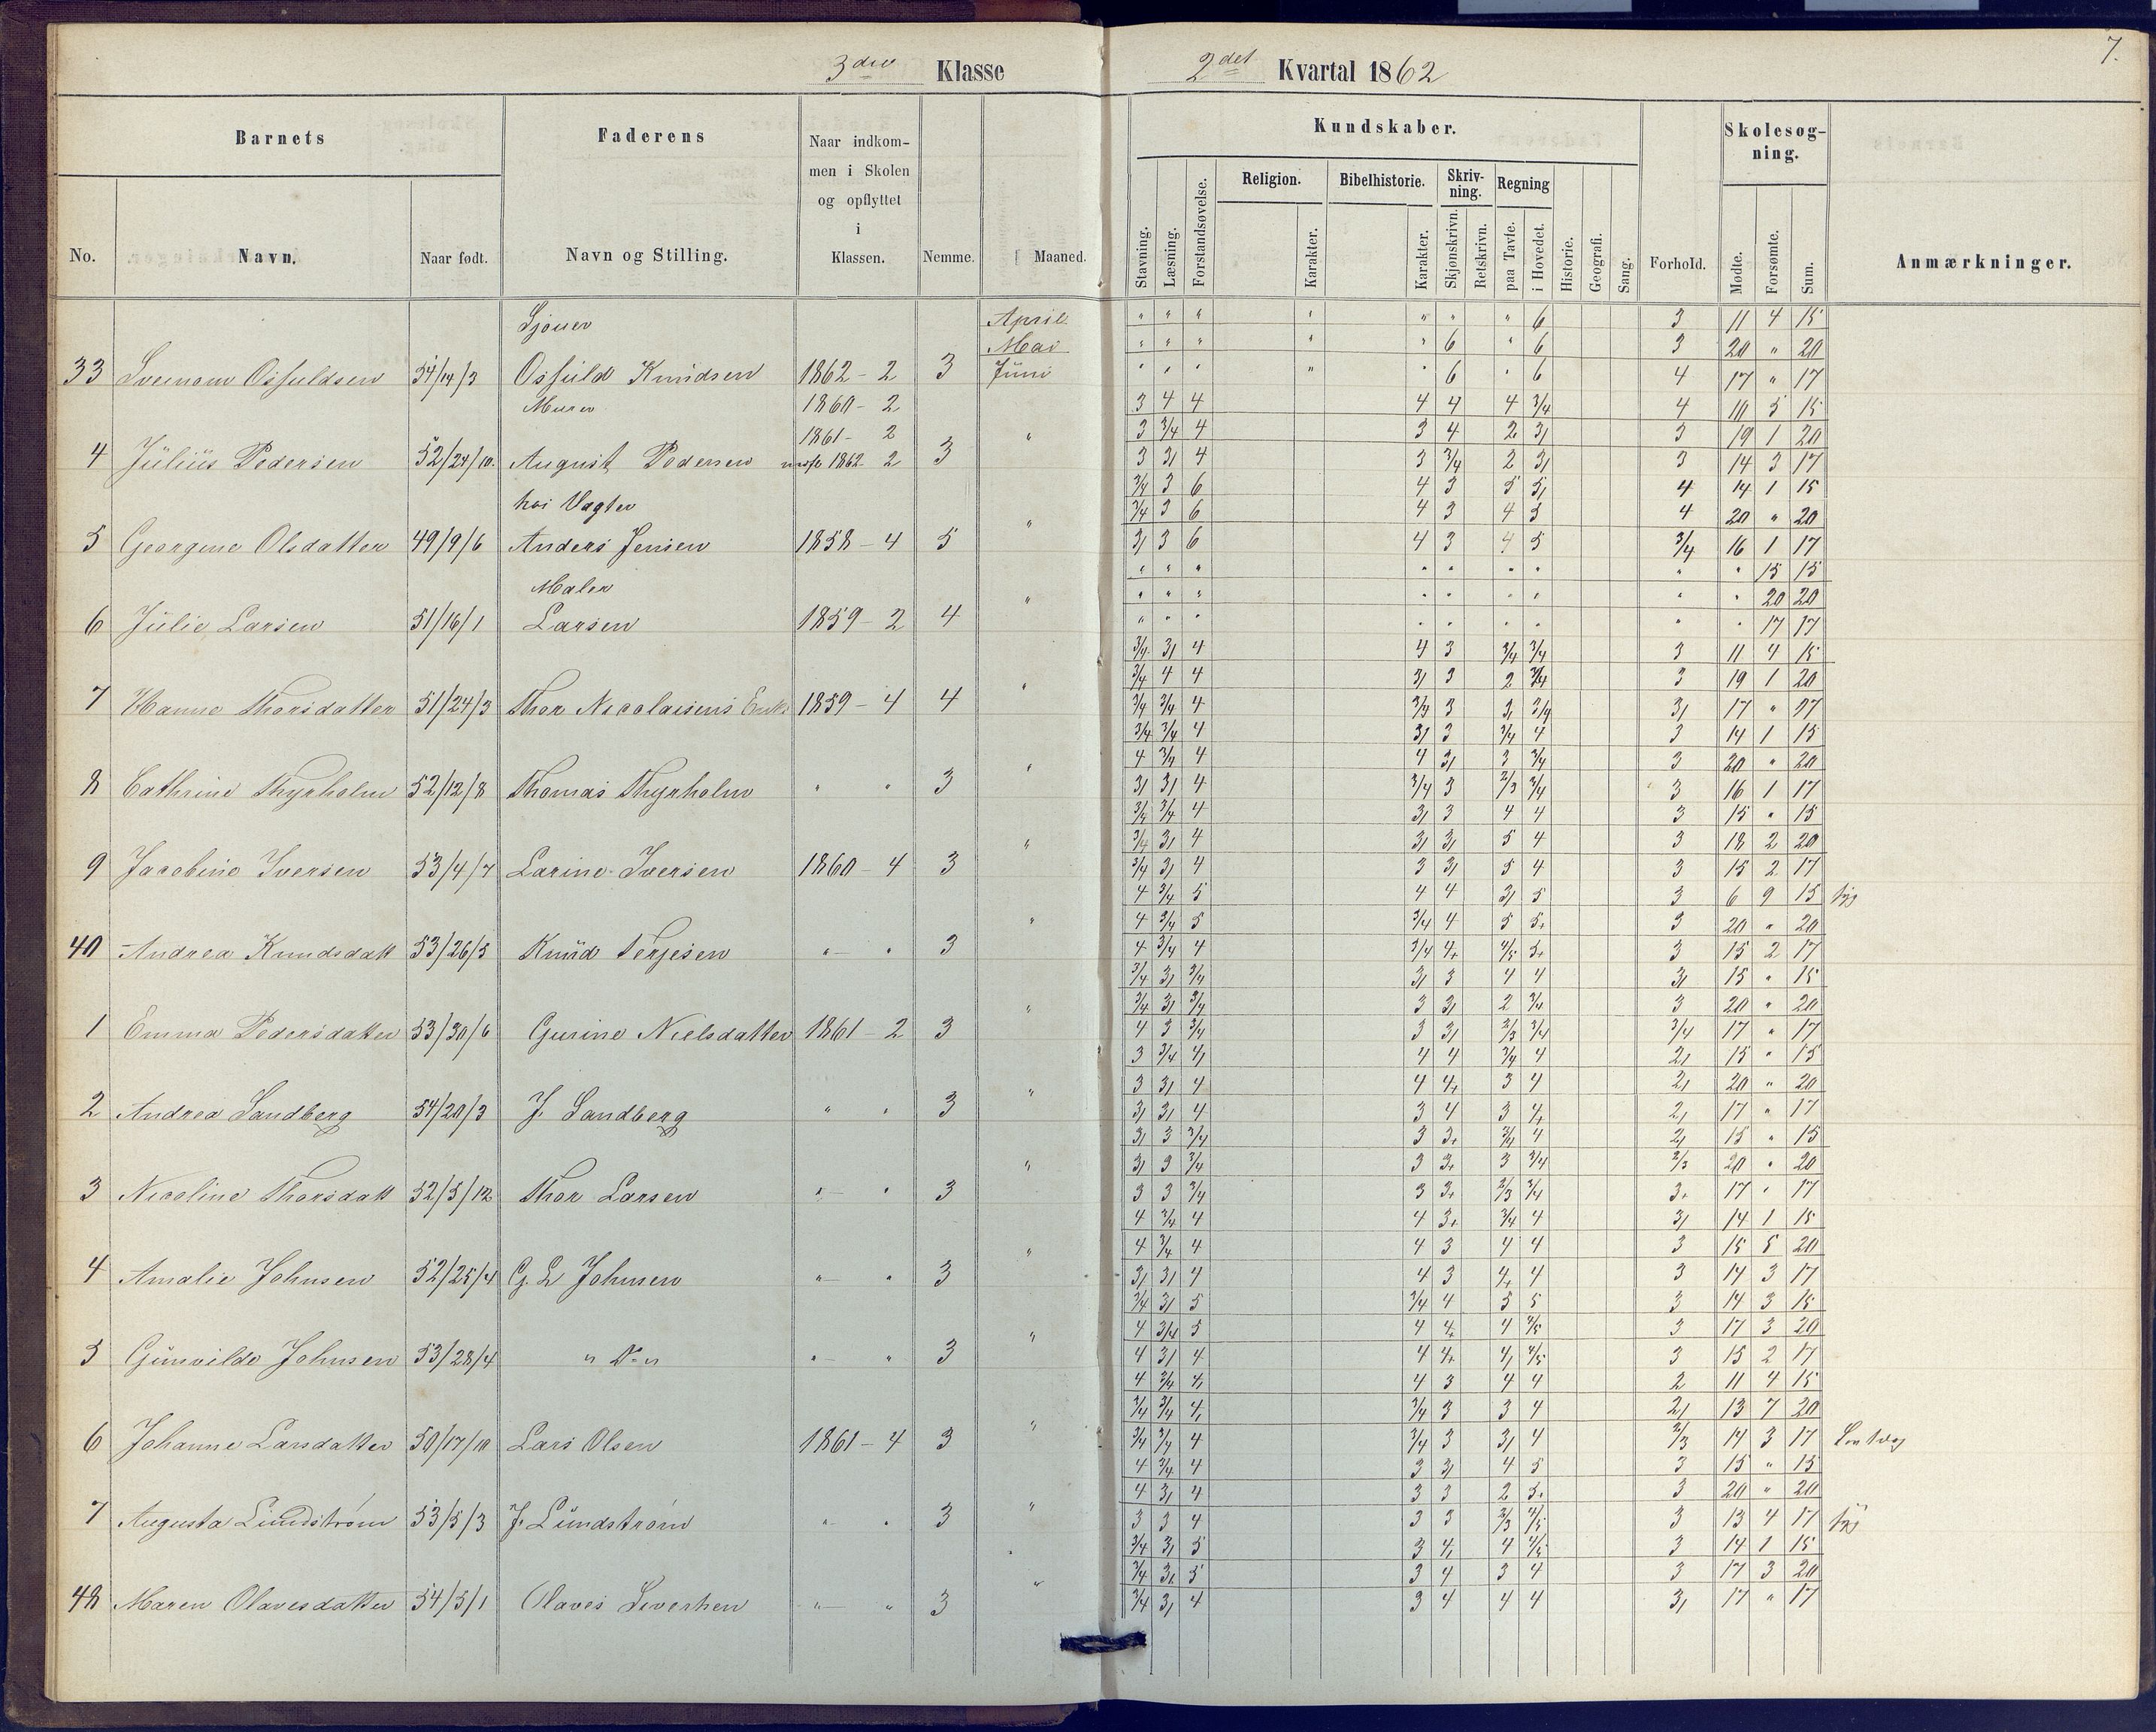 7.
3die Klasse
2det Kvartal 1862
Barnets
Faderens
Naar indkom-
men i Skolen
og opflyttet
i
Klassen.
Nemme.
Maaned.
No.
Navn.
Naar født.
Navn og Stilling.
Kundskaber.
Stavning.
Læsning.
Forstandsøvelse.
Religion.
Karakter.
Bibelhistorie.
Karakter.
Skriv-
ning.
Skjønskrivn.
Retskrivn.
Regning
paa Tavle.
i Hovedet.
Historie.
Geografi.
Sang.
Forhold.
Skolesøg-
ning.
Mødte.
Forsømte.
Sum.
Anmærkninger.
Sjouer April " " " " " " " 6 3 11 4 15
Mai " " " " " 6 " 6 3 20 " 20
33 Osfuldsen 54/14/3 Osfuld Knudsen 1862 - 2 3 Juni " " " " " 6 " 6 4 17 " 17
Murer 1860 - 2 3 4 4 4 4 4 3/4 4 10 5 15
1861 - 2 3 3/4 4 3 4 2 3/ 3 19 1 20
4 Julius Pedersen 52/24/10 August Pedersen 1862 2 3 " 3 3/ 4 3 3/4 2 3/ 3 14 3 17
Vagter 3/4 3 6 4 3 5 5/ 4 14 1 15
3/4 3 6 4 3 4 5 4 20 " 20
5 Georgine Olsdatter 49/9/6 Anders Jensen 1858 - 4 5 " 3/ 3 6 4 3 4 5 3/4 16 1 17
Maler " " " " " " " " " 15 15
" " " " " " " " " 20 20
6 Julie Larsen 51/16/1 Larsen 1859 - 2 4 " " " " " " " " " " 17 17
3/4 3/ 4 4 3 3/4 3/4 3 11 4 15
3/4 4 4 3/ 3 2 3/4 3 19 1 20
7 Hanne Thorsdatter 51/24/3 Thor Nicolaisens Enke 1859 - 4 4 " 3/4 3/4 4 3/4 3 3/ 3/4 3/ 17 " 17
3/4 3/4 4 3/ 3 3/4 4 3 14 1 15
4 3/4 4 4 3/ 3 3/4 3 20 " 20
8 Cathrine Thyrholm 52/12/8 Thomas Thyrholm " " 3 " 3/ 3/ 4 3/4 3 2/3 3/4 3 16 1 17
3/4 3/4 4 3/ 3 4 4 3 15 " 15
3/4 3/ 4 3/ 3/ 5 4 3 18 2 20
9 Jacobine Iversen 53/4/7 Larine Iversen 1860 - 4 3 " 3/4 3/ 4 3 3/ 5 4 3 15 2 17
4 3/4 5 4 4 3/ 5 3 6 9 15 syg
4 3/4 5 3/4 4 5 5+ 3 20 " 20
40 Andrea Knudsdatt 53/26/5 Knud Terjesen " - " 3 " 4 3/4 4 3/4 4+ 4/5 5+ 3 15 2 17
3/4 3/ 3/4 3/ 3 4 4 3/ 15 " 15
3/4 3/ 3/4 3 3/ 2 3/4 3 20 " 20
1 Emma Pedersdatter 53/30/6 Gurine Nielsdatter 1861 - 2 3 " 4 3 3/4 3 3/ 2/3 3/4 3/4 17 " 17
3 3/4 4/ 4 4 3/4 4 2/ 15 " 15
3 3/ 4 4 4+ 3 4 2/ 20 " 20
2 Andrea Sandberg 54/20/3 J. Sandberg " " 3 " 3/ 3/ 4 3 4 3 4+ 2/ 17 " 17
3/ 3 3/4 3 3+ 3/4 4 2/ 15 " 15
3/ 3 3/4 3 3+ 3 3/4 2/3 20 " 20
3 Nicoline Thorsdatt 52/5/12 Thor Larsen " - " 3 " 3 3 3/4 3 3+ 2/3 3/4 3+ 17 " 17
4 3/4 4 4 3+ 3/4 4 3/ 14 1 15
4 3/4 4 4 3 4 4 3 15 5 20
4 Amalie Johnsen 52/25/4 G. L Johnsen " - " 3 " 3/ 3/ 4 4 3 4+ 4 3 14 3 17
3/4 3/ 5 3/4 4 5 5 3 14 3 15
4 3/4 5 4 4+ 4 4/5 3 17 3 20
5 Gunvilde Johnsen 53/28/4 " Do " " - " 3 " 4 3/ 4 4 4+ 4/ 4/5 3 15 2 17
4 3/4 4/ 4 3 4 4 2 11 4 15
3/4 3/4 4/ 3/4 3 3 4 2/ 13 7 20
6 Johanne Larsdatter 50/17/10 Lars Olsen 1861 - 4 3 " 3/4 3/4 4 3/4 3 3/ 4 2/3 14 3 17
4 3/4 4 3 3/ 4 5 3 15 " 15
4 3/ 4 3 3 2 5+ 3 20 " 20
7 Augusta Lundstrøm 53/5/3 J. Lundstrøm " - " 3 " 3 3 4 3 3 2/3 4/5 3 13 4 17 syg
3/4 3/ 5 3 4/ 4 4/5 3 14 1 15
3/4 3/ 5 3 4 3 4 3 17 3 20
48 Maren Olavesdatter 54/5/1 Olaves " - " 3 " 3/4 3/ 4 3 4 4 4 3/ 17 " 17